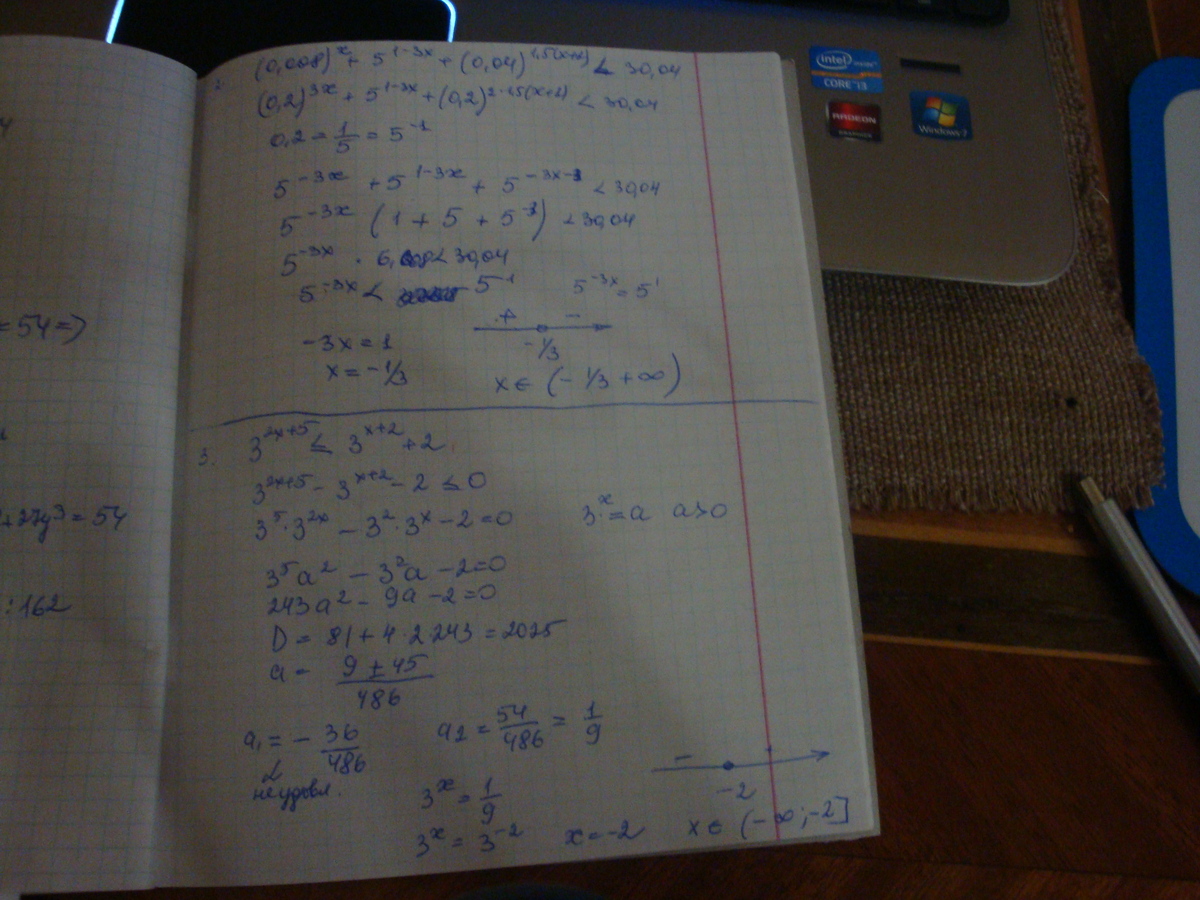 2. (0,008)^x + 5^{1-3x} + (0,04)^{1,5(x+1)} < 30,04
(0,2)^{3x} + 5^{1-3x} + (0,2)^{2·1,5(x+1)} < 30,04
0,2 = 1/5 = 5^{-1}
5^{-3x} + 5^{1-3x} + 5^{-3x-3} < 30,04
5^{-3x} (1 + 5 + 5^{-3}) < 30,04
5^{-3x} · 6,008 < 30,04
5^{-3x} < 5^{1} 5^{-3x} = 5^{1}
+ -
-3x = 1 -1/3
x = -1/3 x ∈ (-1/3 +∞)
3. 3^{2x+5} ≤ 3^{x+2} + 2
3^{2x+5} - 3^{x+2} - 2 ≤ 0
3^5 · 3^{2x} - 3^2 · 3^x - 2 = 0 3^x = a a>0
3^5 a^2 - 3^2 a - 2 = 0
243a^2 - 9a - 2 = 0
D = 81 + 4·2·243 = 2025
a = (9 ± 45)/486
a_1 = - 36/486 a_2 = 54/486 = 1/9
неудовл.
-
-2
3^x = 1/9
3^x = 3^{-2} x = -2 x ∈ (-∞; -2]
= 54 =>
+27y^3 = 54
: 162
intel inside™
CORE™ i3
RADEON
GRAPHICS
Windows 7